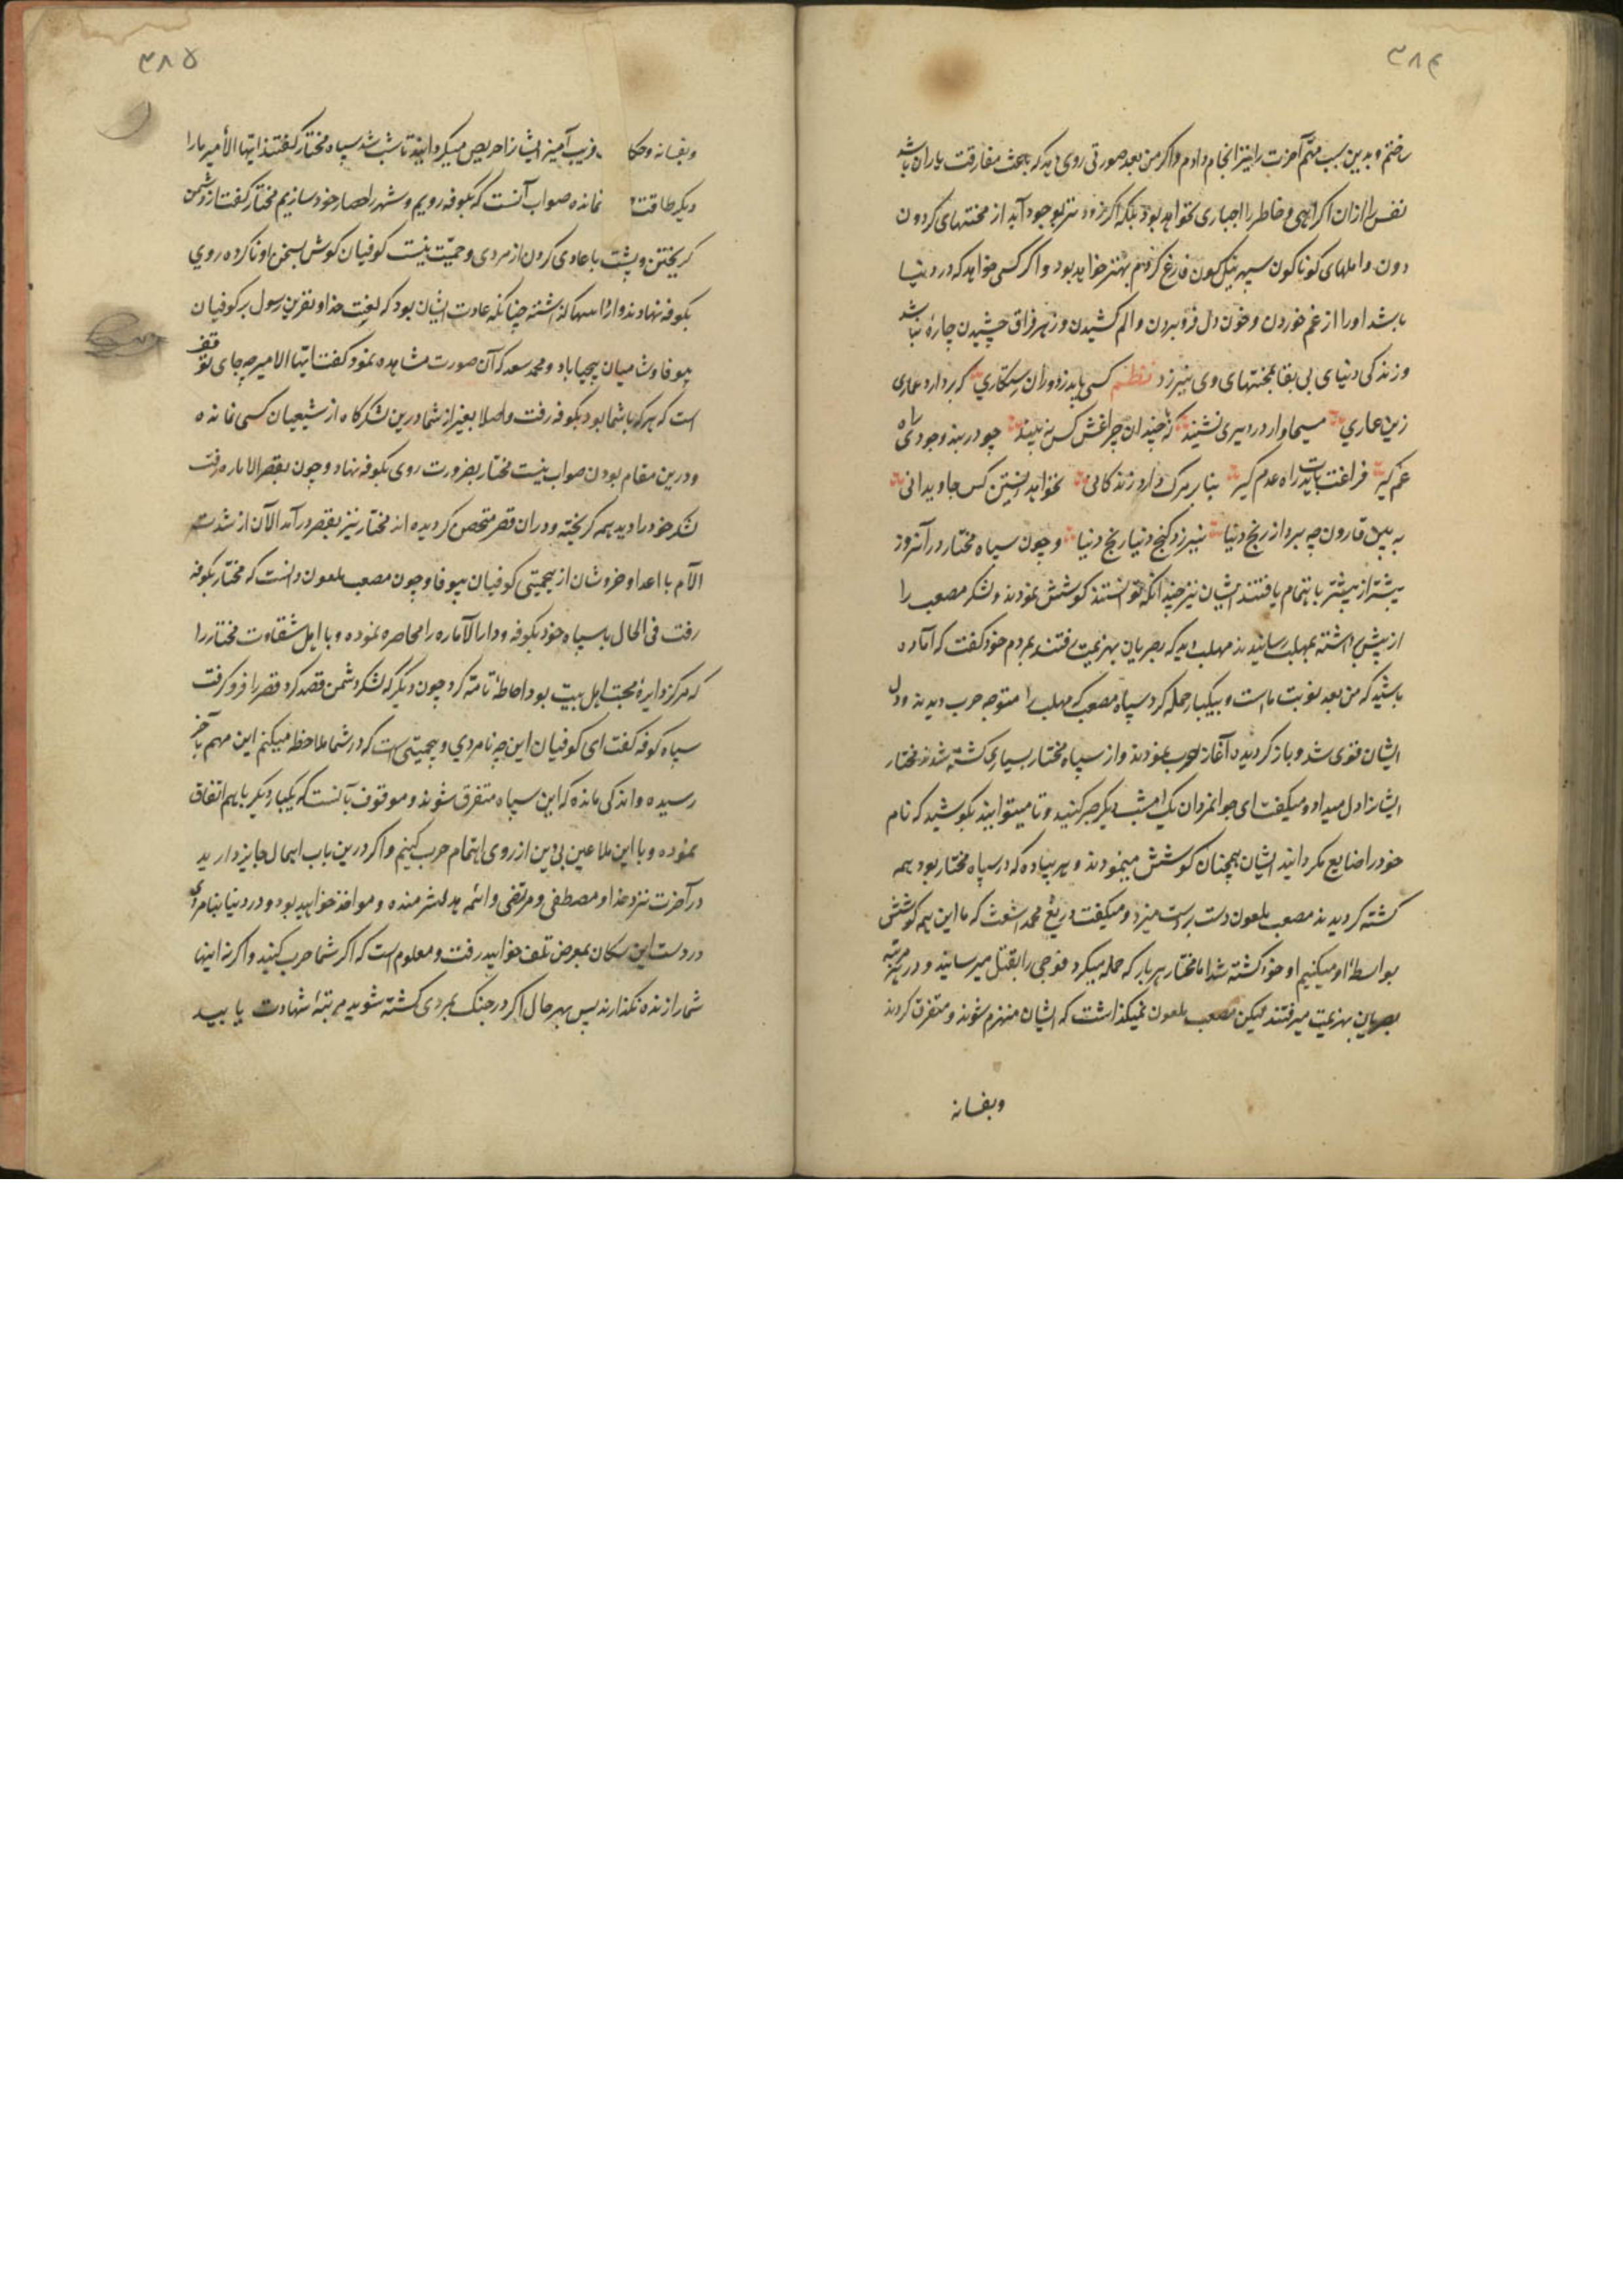 ۳۸۴
ساختم و بدین سبب مهم آخرت را نیز انجام دادم و اگر من بعد صورتی روی دهد که باعث مفارقت یاران باشد
نفس را از آن اکراهی و خاطر را اجباری نخواهد بود بلکه اگر زودتر بوجود آید از محنتهای گردون
دون و المهای گوناگون سپهر نیلگون فارغ گردم بهتر خواهد بود و اگر کسی خواهد که در دنیا
باشد او را از غم خوردن و خون دل فرو بردن و الم کشیدن و زهر فراق چشیدن چاره نباشد
و زندگی دنیای بی بقا بمحنتهای وی نیرزد نظم کسی باید ز دوران رستگاری که بردارد عماری
زین عماری مسیحاوار در دیری نشیند که چندان چراغش کس نبیند چو در بند وجودی راه
غم گیر فراغت بایدت راه عدم گیر بنا بر مرگ دارد زندگانی نخواهد زیستن کس جاودانی
به بین قارون چه برد از رنج دنیا نیرزد گنج دنیا رنج دنیا و چون سپاه مختار در آنروز
بیشتر از پیشتر باهتمام یافتند ایشان نیز چندانکه توانستند کوشش نمودند و لشکر مصعب را
از پیش برداشته بمهلب رسانیدند مهلب دید که بصریان بهزیمت رفتند بمردم خود گفت که آماده
باشید که من بعد نوبت ماست و بیکبار حمله کرد سپاه مصعب که مهلب را متوجه حرب دیدند دل
ایشان قوی شد و باز گردیده آغاز حرب نمودند و از سپاه مختار بسیاری کشته شدند مختار
ایشانرا دل میداد و میگفت ای جوانمردان یک امشب دیگر صبر کنید و تا میتوانید بکوشید که نام
خود را ضایع مگردانید ایشان همچنان کوشش مینمودند و هر پیاده که در سپاه مختار بود همه
کشته گردیدند مصعب ملعون دست بر دست میزد و میگفت دریغ محمد اشعث که ما این همه کوشش
بواسطهٔ او میکنیم او خود کشته شد اما مختار هر بار که حمله میکرد فوجی را بقتل میرسانید و در هر مرتبه
بصریان بهزیمت میرفتند لیکن مصعب ملعون نمیگذاشت که ایشان منهزم شوند و متفرق گردند
وبفسانه
۳۸۵
وبفسانه و حکا فریب آمیز ایشانرا حریص میگردانید تا شب شد سپاه مختار گفتند ایها الأمیر ما را
دیگر طاقت نمانده صواب آنست که بکوفه رویم و شهر را حصار خود سازیم مختار گفت از دشمن
گریختن و پشت باعادی کردن از مردی و حمیّت نیست کوفیان گوش بسخن او ناکرده روی
بکوفه نهادند و او را تنها گذاشته چنانکه عادت ایشان بود که لعنت خدا و نفرین رسول بر کوفیان
بیوفا و شامیان بیحیا باد و محمد سعد که آن صورت مشاهده نمود گفت ایها الامیر چه جای توقف
است که هرکه با شما بود بکوفه رفت و اصلا بغیر از شما درین لشکرگاه از شیعیان کسی نمانده
و درین مقام بودن صواب نیست مختار بضرورت روی بکوفه نهاد و چون بقصر الاماره رفت
لشکر خود را دید همه گریخته و در آن قصر متحصن گردیده اند مختار نیز بقصر درآمد الآن از شدت
الآم با اعدا و خروشان از بیحمیتی کوفیان بیوفا و چون مصعب ملعون دانست که مختار بکوفه
رفت فی الحال با سپاه خود بکوفه و دار الأماره را محاصره نموده و با اهل شقاوت مختار را
که مرکز دایرهٔ محبت اهل بیت بود احاطهٔ تامّه کرد چون دیگر که لشکر دشمن قصد کرد قصر را فرو گرفت
سپاه کوفه گفت ای کوفیان این چه نامردی و بیحمیتی است که در شما ملاحظه میکنم این مهم بآخر
رسیده و اندکی مانده که این سپاه متفرق شوند و موقوف بآنست که یکبار دیگر با هم اتفاق
نموده و با این ملاعین بی دین از روی اهتمام حرب کنیم و اگر درین باب اهمال جایز دارید
در آخرت نزد خدا و مصطفی و مرتضی و ائمه هدا شرمنده و مواخذ خواهید بود و در دنیا بنامردی
در دست این سگان بمعرض تلف خواهید رفت و معلوم است که اگر شما حرب کنید و اگر نه اینها
شما را زنده نگذارند پس بهر حال اگر در جنگ بمردی کشته شوید مرتبهٔ شهادت یابید